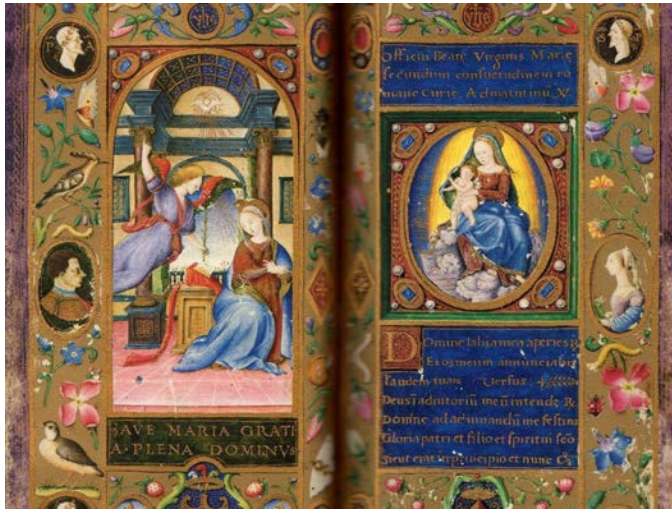 yhs
P A
AVE MARIA GRATI
A·PLENA DOMINVS
yhs
Officiu Beate Virginis Marie
secundum consuetudinem ro
mane Curie. Ad matutinu. V.
Domine labia mea aperies
Et os meum annunciabit
laudem tuam Versus
Deus i adiutoriu meu intende R.
Domine ad adiuuandu me festina
Gloria patri et filio et spiritui sco
Sicut erat in principio et nunc